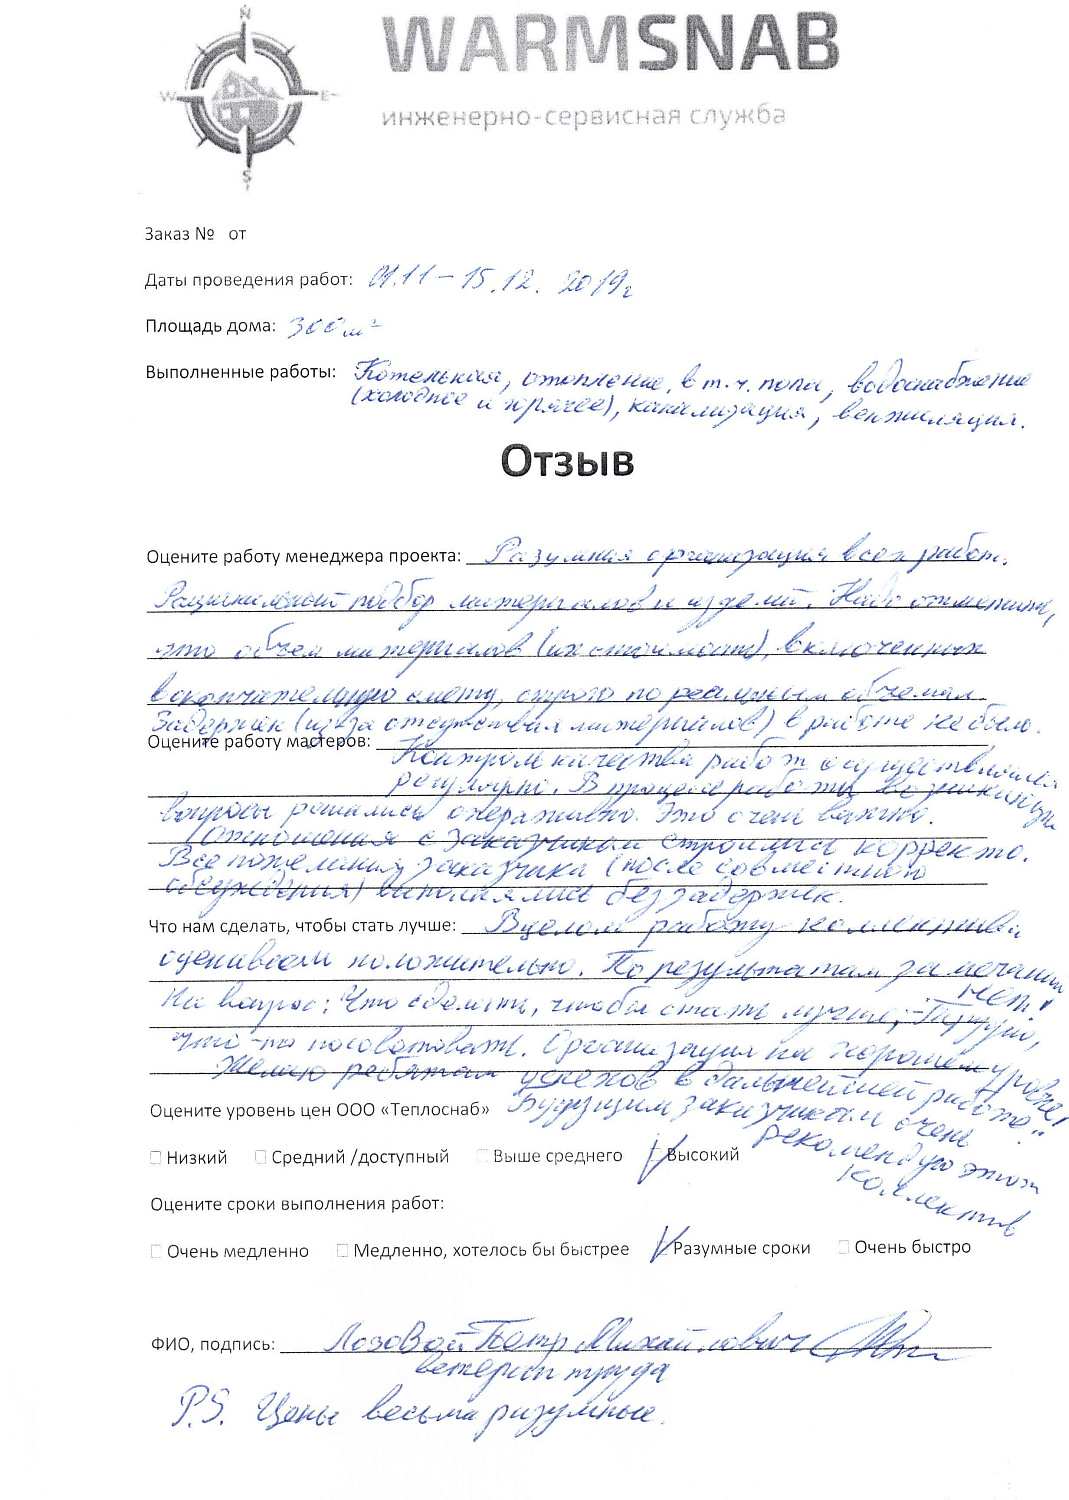 N
W E
S
WARMSNAB
инженерно-сервисная служба
Заказ № от
Даты проведения работ: 01.11 – 15.12. 2019г
Площадь дома: 300 м²
Выполненные работы: Котельная, отопление, в т.ч. полы, водоснабжение
(холодное и горячее), канализация, вентиляция.
Отзыв
Оцените работу менеджера проекта: Разумная организация всех работ.
Рациональный подбор материалов и изделий. Надо отметить,
что объем материалов (их стоимость), включенных
в окончательную смету, строго по реальным объемам.
Задержек (из-за отсутствия материалов) в работе не было.
Оцените работу мастеров:
Контроль качества работ осуществлялся
регулярно. В процессе работы возникающие
вопросы решались оперативно. Это очень важно.
Отношения с заказчиком строились корректно.
Все пожелания заказчика (после совместного
обсуждения) выполнялись без задержек.
Что нам сделать, чтобы стать лучше: В целом работу коллектива
оцениваем положительно. По результатам замечаний
нет!
На вопрос: Что сделать, чтобы стать лучше, - Трудно,
что-то посоветовать. Организация на хорошем уровне!
Желаю ребятам успехов в дальнейшей работе!
Оцените уровень цен ООО «Теплоснаб» Будущим заказчикам очень
рекомендую этот
коллектив
Низкий Средний /доступный Выше среднего Высокий
Оцените сроки выполнения работ:
Очень медленно Медленно, хотелось бы быстрее Разумные сроки Очень быстро
ФИО, подпись: Лозовой Петр Михайлович
ветеран труда
P.S. Цены весьма разумные.